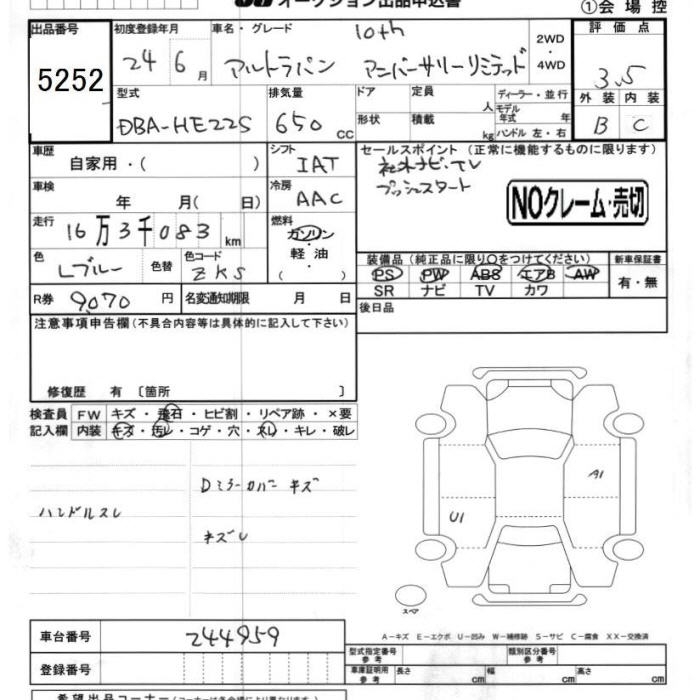 オークション出品申込書
①会場控
出品番号
5252
初度登録年月
24 6月
車名・グレード
10th
アルトラパン アニバーサリーリミテッド
2WD
・
4WD
評価点
3.5
外装 内装
B C
型式
DBA-HE22S
排気量
650 CC
ドア
形状
定員 人
積載 kg
ディーラー・並行
モデル年式 年
ハンドル 左・右
車歴
自家用・( )
シフト
IAT
車検
年 月( 日)
冷房
AAC
走行
16万3千083km
燃料
ガソリン
・
軽油
( )
色
Lブルー
色替
色コード
ZKS
R券 9070 円
名変通知期限 月 日
セールスポイント(正常に機能するものに限ります)
社外ナビ・TV
プッシュスタート
NOクレーム・売切
装備品(純正品に限り○をつけてください)
PS PW ABS エアB AW
SR ナビ TV カワ
新車保証書
有・無
後日品
注意事項申告欄(不具合内容等は具体的に記入して下さい)
修復歴 有〔箇所 〕
検査員
記入欄
FW キズ・飛石・ヒビ割・リペア跡・×要
内装 キズ・汚レ・コゲ・穴・スレ・キレ・破レ
Dミラーカバーキズ
ハンドルスレ
ネズレ
A1
U1
スペア
A-キズ E-エクボ U-凹み W-補修跡 S-サビ C-腐食 XX-交換済
車台番号 244959
登録番号
型式指定番号
参考
類別区分番号
参考
車庫証明用
参考
長さ cm 幅 cm 高さ cm
希望出品コーナー